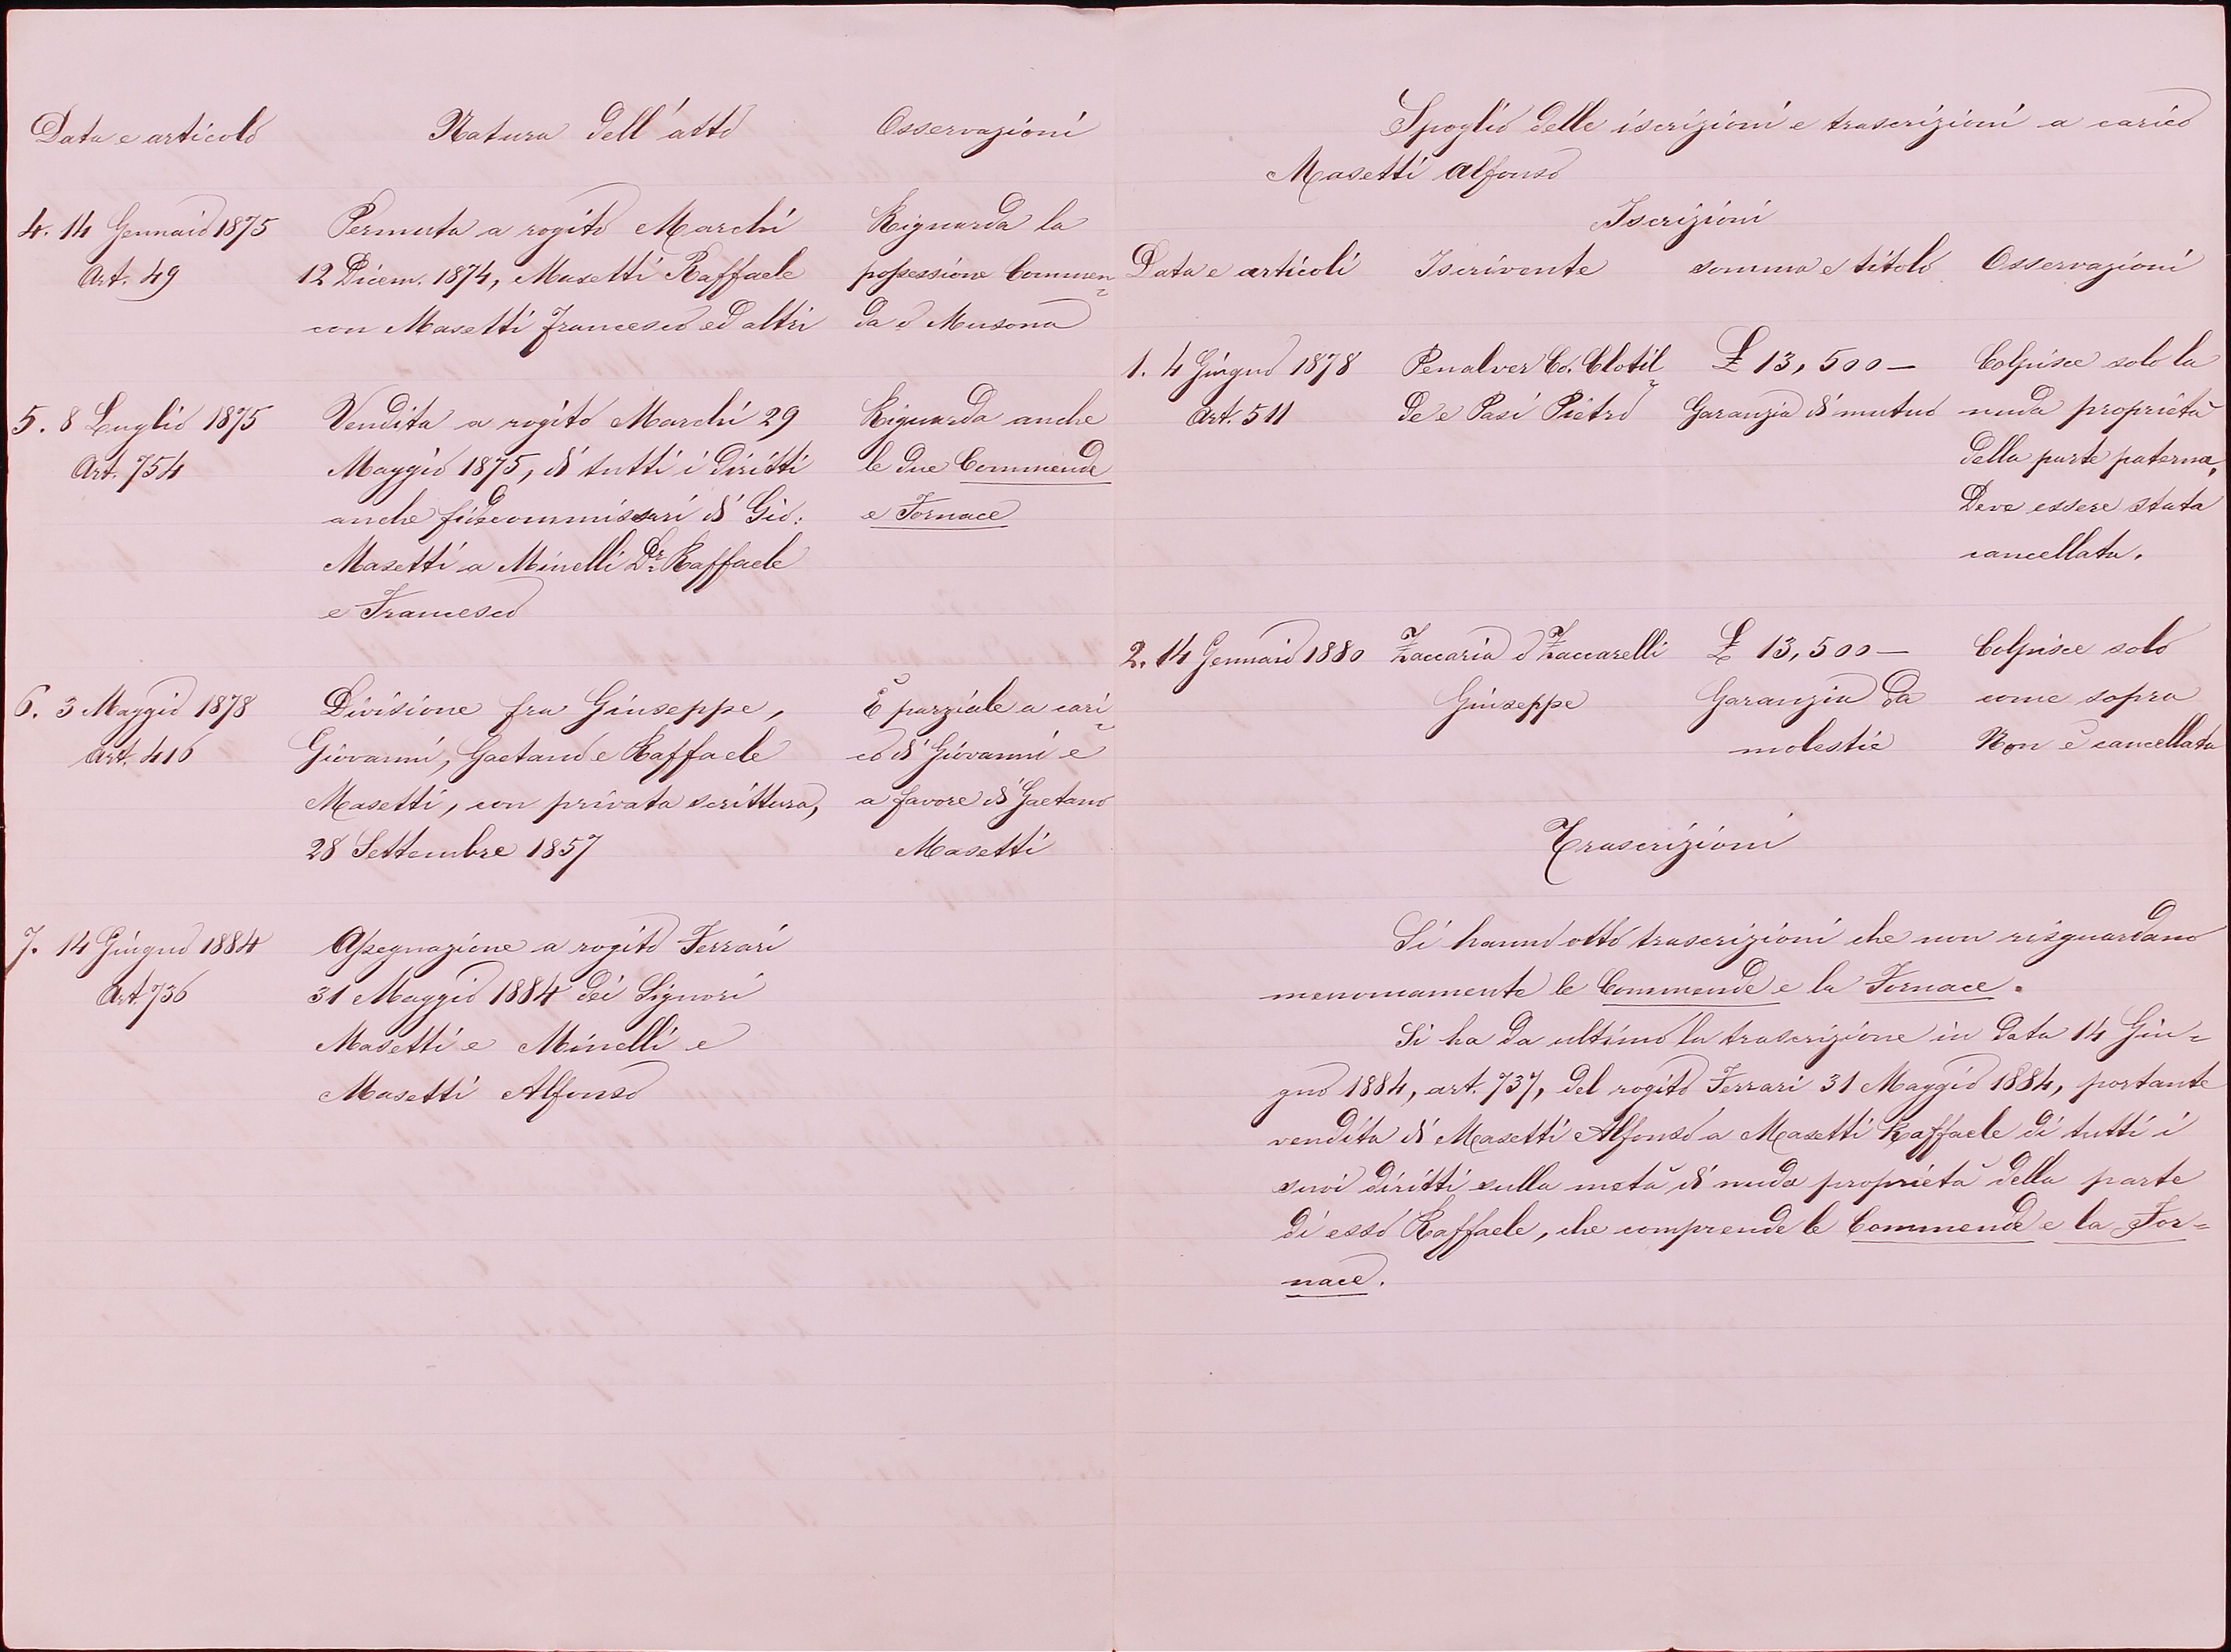 Data e articolo Natura dell'atto Osservazioni
4. 14 Gennaio 1875 Permuta a rogito Marchi Riguarda la
Art. 49 12 Dicem. 1874, Masetti Raffaele possessione Commen=
con Masetti Francesco ed altri da o Musona
5. 8 Luglio 1875 Vendita a rogito Marchi 29 Riguarda anche
Art. 754 Maggio 1875, di tutti i diritti le due Commende
anche fidecommissari di Gio: e Fornace
Masetti a Minelli Dr. Raffaele
e Francesco
6. 3 Maggio 1878 Divisione fra Giuseppe, È parziale a cari=
Art. 416 Giovanni, Gaetano e Raffaele co di Giovanni e
Masetti, con privata scrittura, a favore di Gaetano
28 Settembre 1857 Masetti
7. 14 Giugno 1884 Assegnazione a rogito Ferrari
Art. 736 31 Maggio 1884 dei Signori
Masetti e Minelli e
Masetti Alfonso
Spoglio delle iscrizioni e trascrizioni a carico
Masetti Alfonso
Iscrizioni
Data e articoli Iscrivente somma e titolo Osservazioni
1. 4 Giugno 1878 Penalver Co. Clotil= £ 13,500 — Colpisce solo la
Art. 511 de e Pasi Pietro Garanzia di mutuo nuda proprietà
della parte paterna,
Deve essere stata
cancellata.
2. 14 Gennaio 1880 Zaccaria o Zaccarelli £ 13,500 — Colpisce solo
Giuseppe Garanzia da come sopra
molestie Non è cancellata
Trascrizioni
Si hanno otto trascrizioni che non risguardano
menomamente le Commende e la Fornace.
Si ha da ultimo la trascrizione in data 14 Giu=
gno 1884, art. 737, del rogito Ferrari 31 Maggio 1884, portante
vendita di Masetti Alfonso a Masetti Raffaele di tutti i
suoi diritti sulla metà di nuda proprietà della parte
di esso Raffaele, che comprende le Commende e la For=
nace.